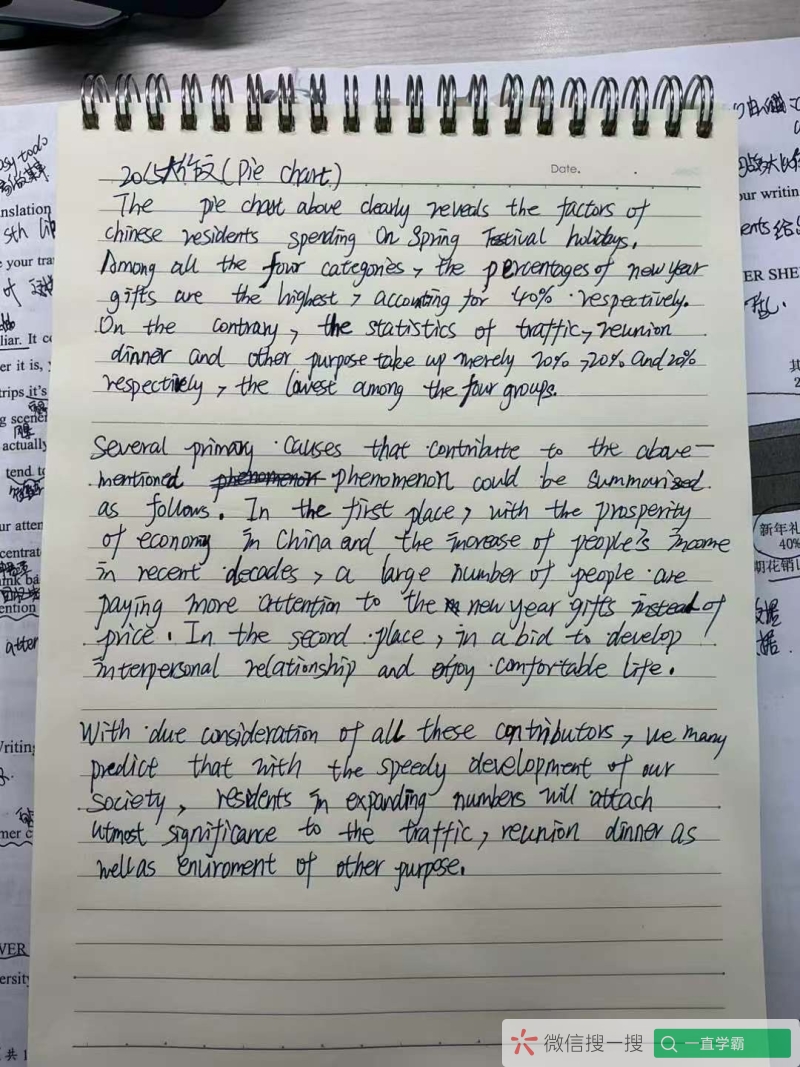 2015大作文(Pie chart)
Date.
The pie chart above clearly reveals the factors of
chinese residents spending on Spring Festival holidays.
Among all the four categories, the percentages of new year
gifts are the highest, accounting for 40% respectively.
On the contrary, the statistics of traffic, reunion
dinner and other purpose take up merely 20%, 20% and 20%
respectively, the lowest among the four groups.
Several primary causes that contribute to the above-
mentioned phenomenon phenomenon could be summarized
as follows. In the first place, with the prosperity
of economy in China and the increase of people's income
in recent decades, a large number of people are
paying more attention to the new year gifts instead of
price. In the second place, in a bid to develop
interpersonal relationship and enjoy comfortable life.
With due consideration of all these contributors, we many
predict that with the speedy development of our
society, residents in expanding numbers will attach
utmost significance to the traffic, reunion dinner as
well as enviroment of other purpose.
nslation
5th
e your tra
liar. It c
er it is, y
trips it's
g scener
actually
tend to
ur atten
centrate
ention
Writing
mer c
VER
ersity
共 1
our writin
ER SHE
新年礼
40%
期花销
微信搜一搜
一直学霸